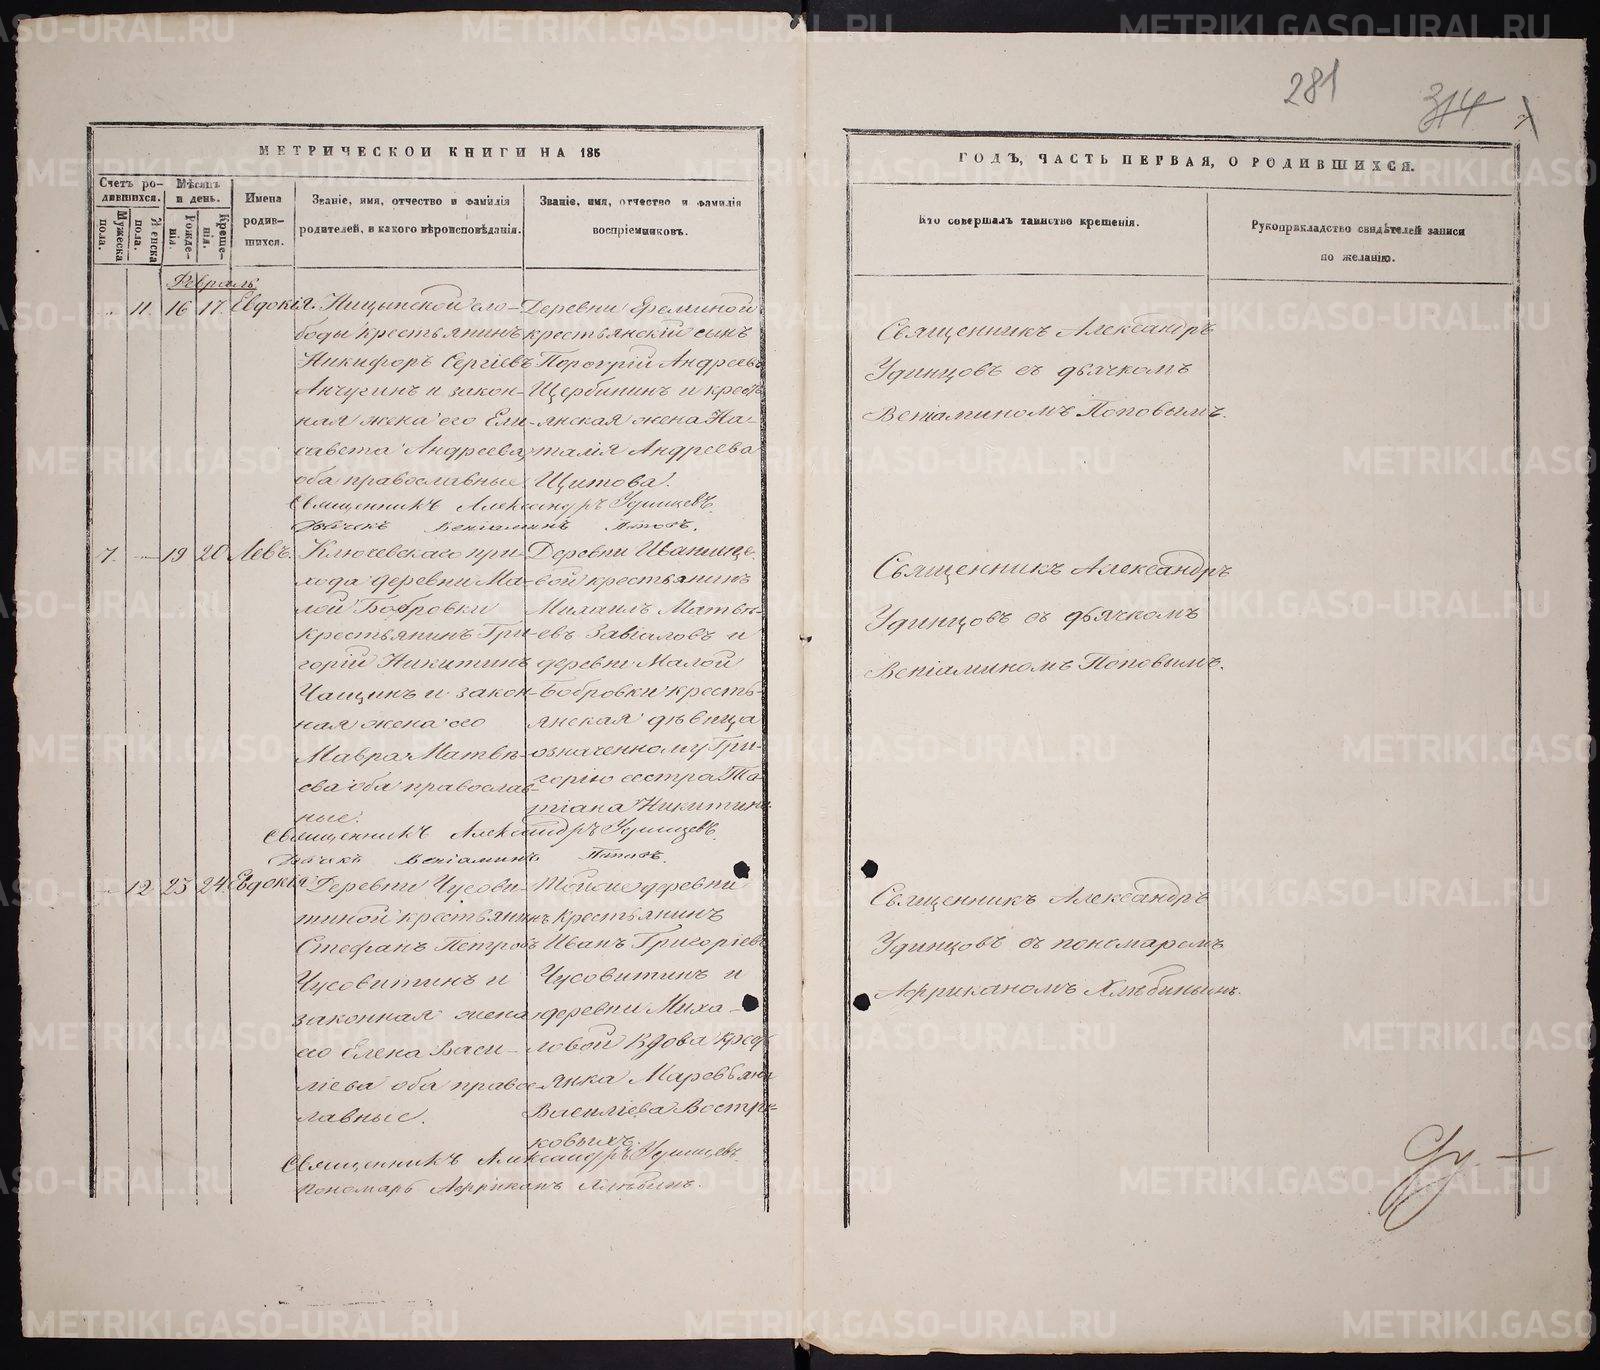 281
314
МЕТРИЧЕСКОЙ КНИГИ НА 185
ГОДЪ, ЧАСТЬ ПЕРВАЯ, О РОДИВШИХСЯ.
Счетъ ро-
дившихся.
Мужеска
пола.
Женска
пола.
Мѣсяцъ
и день.
Рожде-
нія.
Креще-
нія.
Имена
родив-
шихся.
Званіе, имя, отчество и фамилія
родителей, и какого вѣроисповѣданія.
Званіе, имя, отчество и фамилія
воспріемниковъ.
Кто совершалъ таинство крещенія.
Рукоприкладство свидѣтелей записи
по желанію.
Февраль
11. 16 17. Евдокія
Ницынской сло-
боды крестьянинъ
Никифоръ Сергіевъ
Анчугинъ и закон-
ная жена его Ели-
савета Андреева,
оба православные.
Деревни Ереминой
крестьянскій сынъ
Порфирій Андреевъ
Щербининъ и кресть
янская жена На-
талія Андреева
Щитова.
Священникъ Александръ
Удинцовъ съ дьячкомъ
Веніаминомъ Поповымъ.
Священникъ Александръ Удинцевъ.
Дьячекъ Веніаминъ Поповъ.
7. — 19 20 Левъ.
Ключевскаго при-
хода деревни Ма-
лой Бобровки
крестьянинъ Гри-
горій Никитинъ
Чащинъ и закон-
ная жена его
Мавра Матвѣ-
ева оба православ-
ные.
Деревни Иванище-
вой крестьянинъ
Михаилъ Матвѣ-
евъ Завіаловъ и
деревни Малой
Бобровки кресть-
янская дѣвица
означенному Гри-
горію сестра Та-
тіана Никитина
Священникъ Александръ
Удинцовъ съ дьячкомъ
Веніаминомъ Поповымъ.
Священникъ Александръ Удинцевъ.
Дьячекъ Веніаминъ Поповъ.
12 23 24 Евдокія
Деревни Чусови-
тиной крестьянинъ
Стефанъ Петровъ
Чусовитинъ и
законная жена
его Елена Васи-
ліева оба правос-
лавные.
Тойже деревни
крестьянинъ
Иванъ Григоріевъ
Чусовитинъ и
деревни Миха-
ловой вдова крест
янка
Василіева Востри-
ковыхъ.
Священникъ Александръ
Удинцовъ съ пономаремъ
Африканомъ Хлѣбинымъ.
Священникъ Александръ Удинцевъ.
Пономарь Африканъ Хлѣбинъ.
METRIKI.GASO-URAL.RU